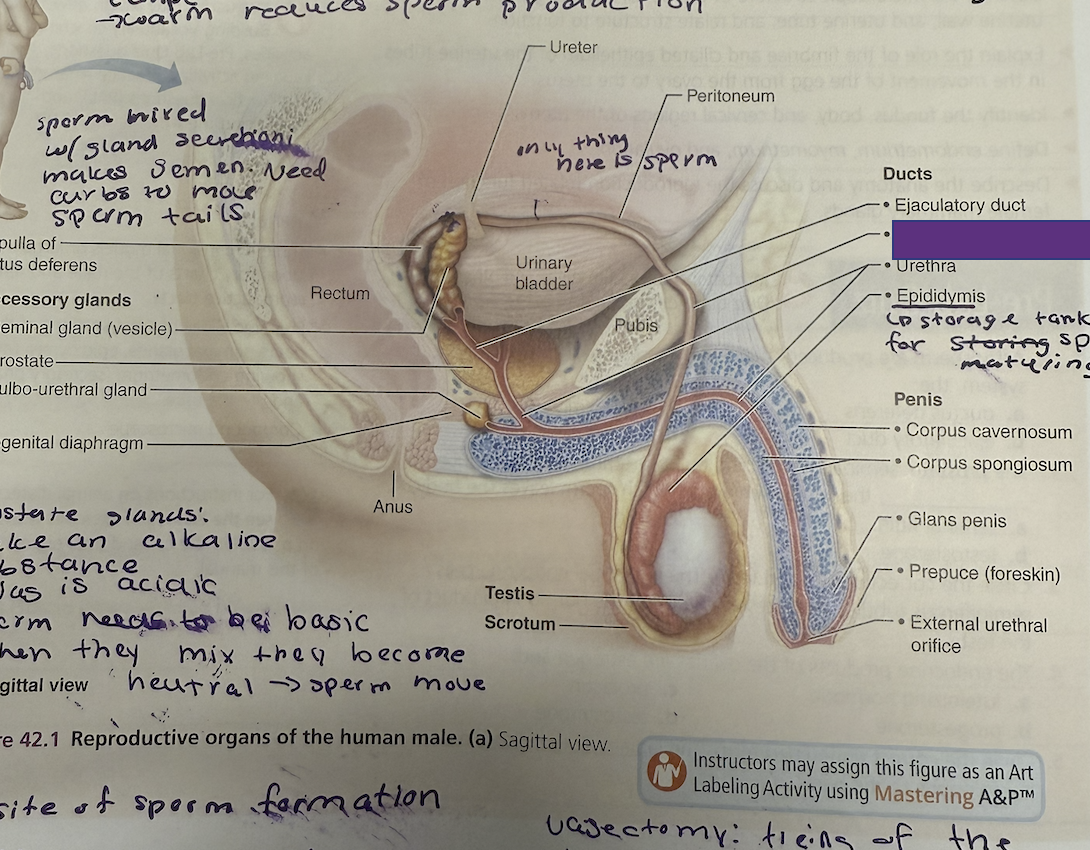 →warm reduces sperm production
Ureter
Peritoneum
sperm mixed
w/ gland
makes semen. Need
carbs to move
sperm tails
only thing
here is sperm
Ducts
• Ejaculatory duct
•
• Urethra
• Epididymis
↳ storage tank
for storing sp
maturing
pulla of
tus deferens
ccessory glands
eminal gland (vesicle)
rostate
ulbo-urethral gland
genital diaphragm
Rectum
Urinary
bladder
Pubis
Anus
Penis
• Corpus cavernosum
• Corpus spongiosum
• Glans penis
• Prepuce (foreskin)
• External urethral
orifice
Testis
Scrotum
state glands:
ke an alkaline
bstance
is acidic
rm needs to be basic
hen they mix they become
neutral → sperm move
gittal view
re 42.1 Reproductive organs of the human male. (a) Sagittal view.
Instructors may assign this figure as an Art
Labeling Activity using Mastering A&P™
site of sperm formation
vasectomy: of the